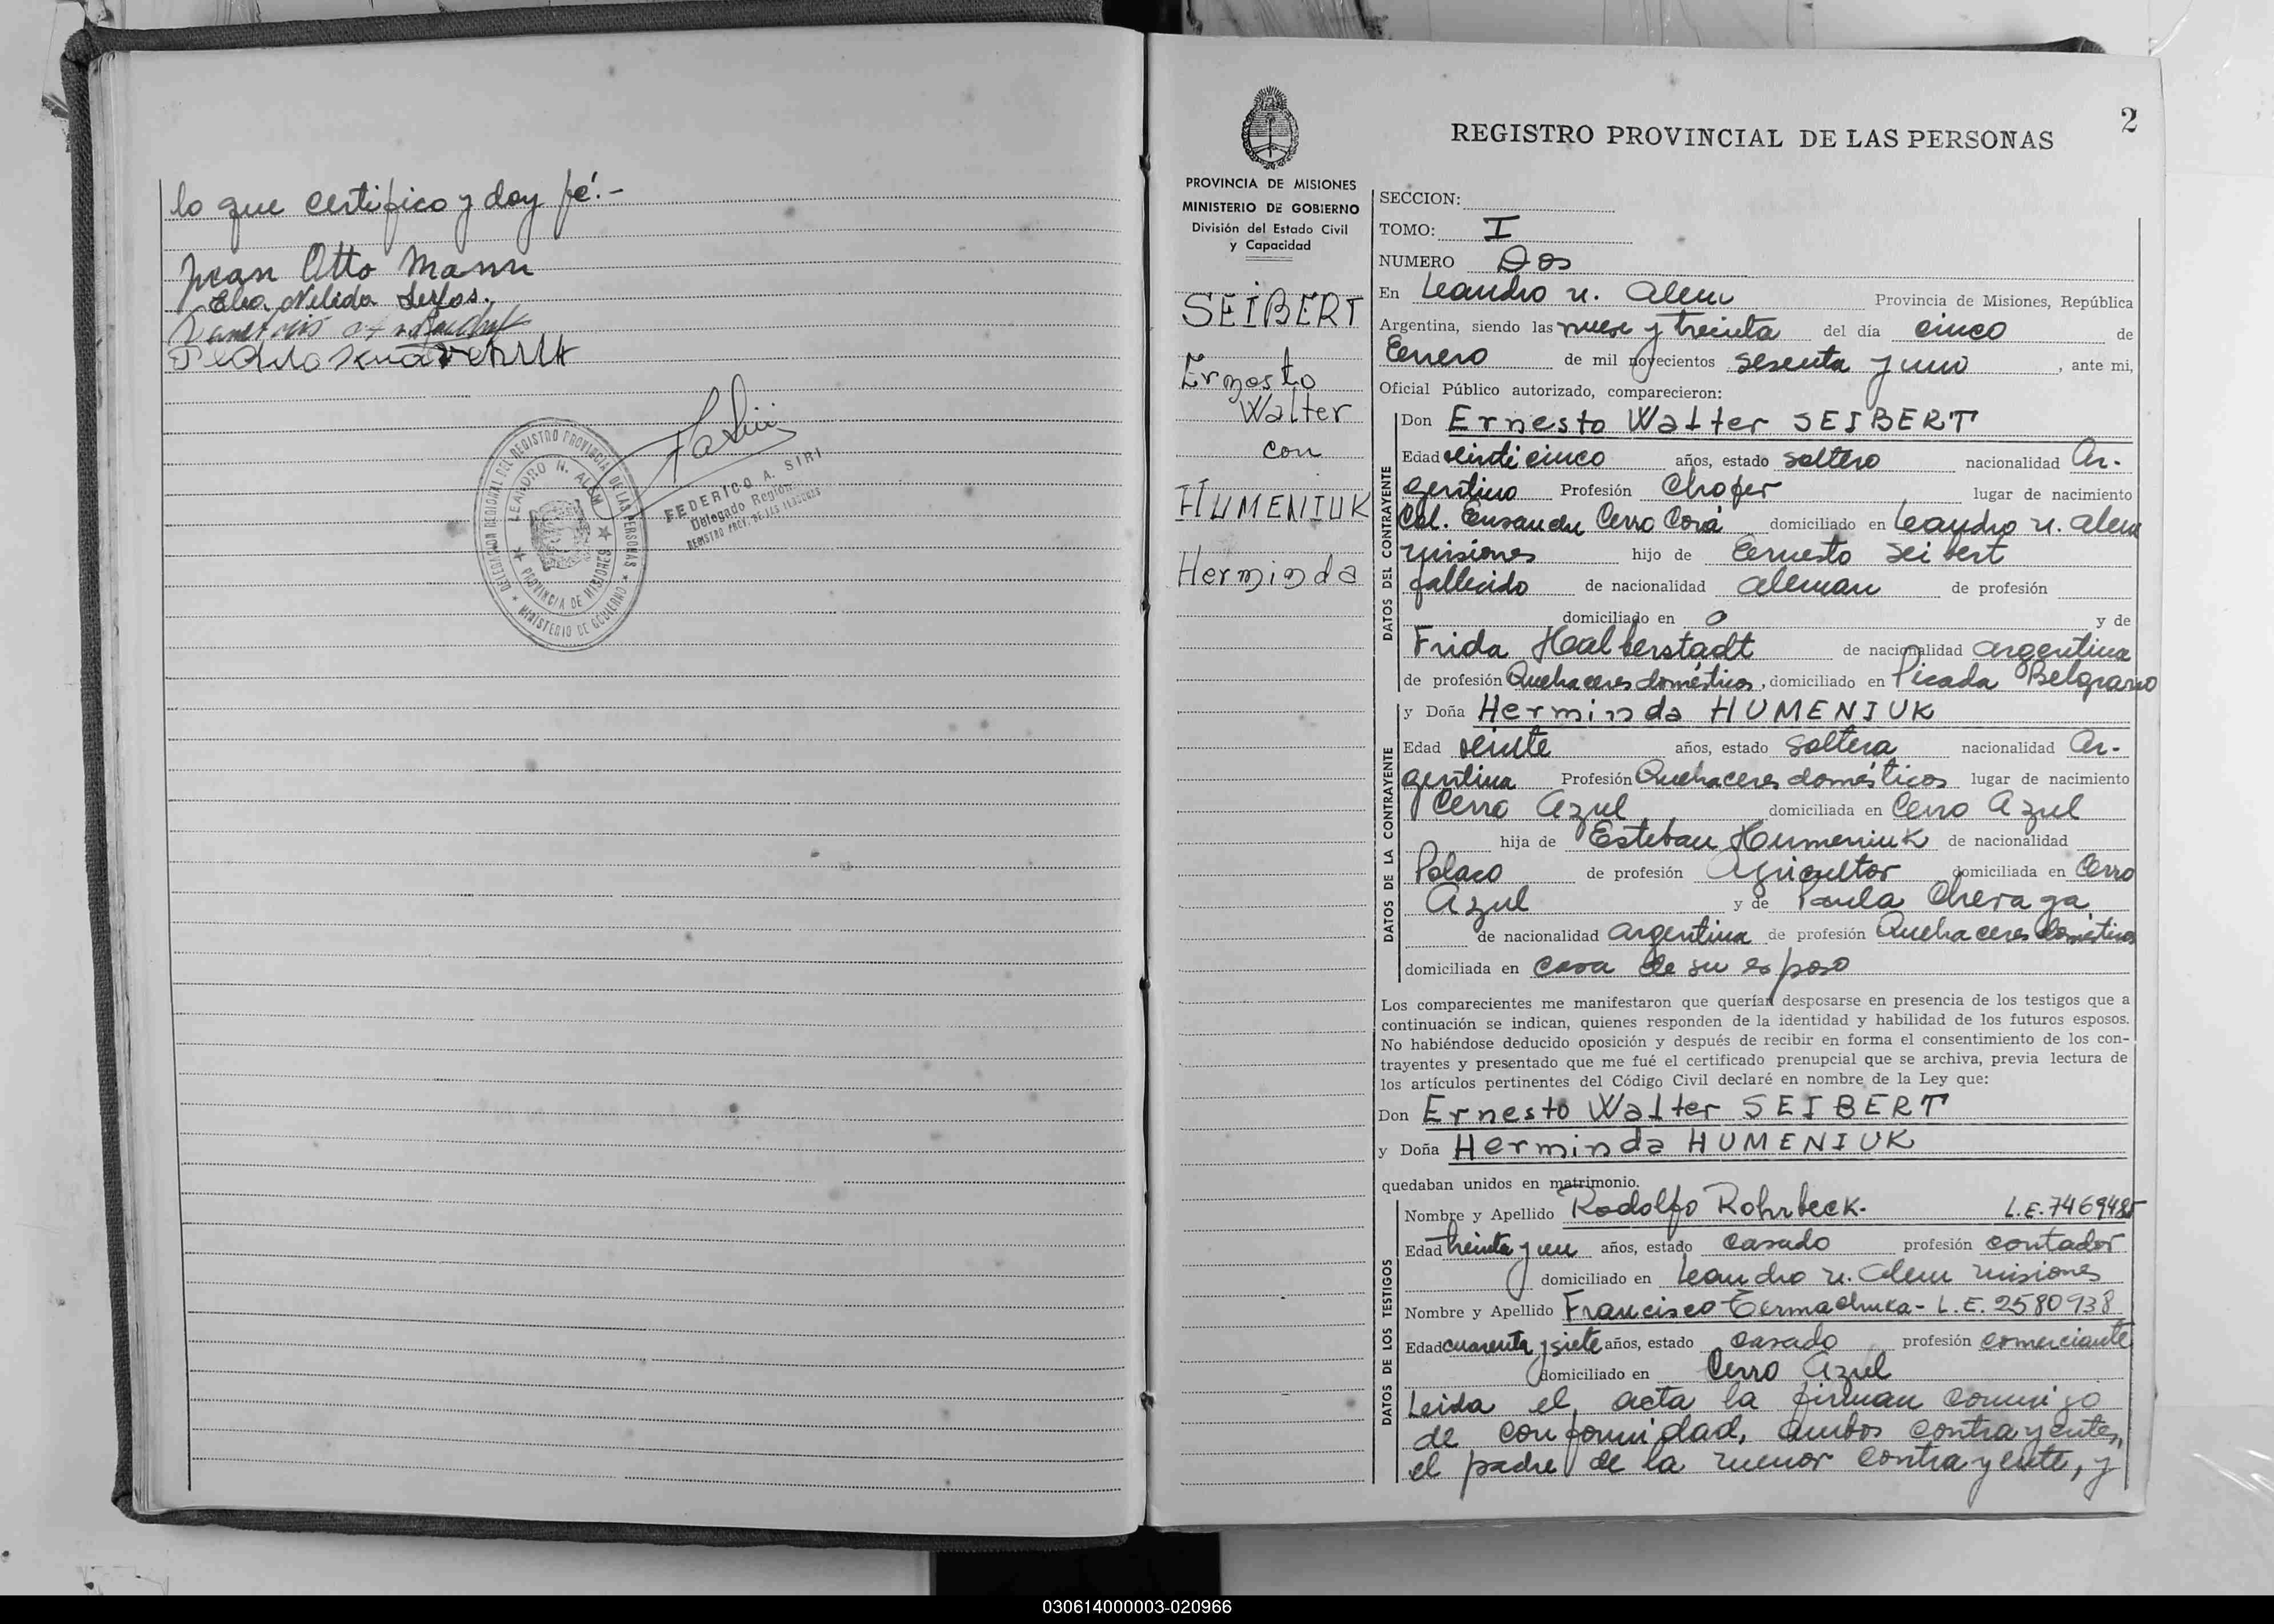 lo que certifico y doy fé.-
Juan Otto Mann
Elsa Nelida
Pedro
DELEGACION REGIONAL DEL REGISTRO PROVINCIAL DE LAS PERSONAS
LEANDRO N. ALEM
PROVINCIA DE MISIONES
MINISTERIO DE GOBIERNO
FEDERICO A. SIRI
Delegado Regional
REGISTRO PROV. DE LAS PERSONAS
PROVINCIA DE MISIONES
MINISTERIO DE GOBIERNO
División del Estado Civil
y Capacidad
SEIBERT
Ernesto
Walter
con
HUMENIUK
Herminda
2
REGISTRO PROVINCIAL DE LAS PERSONAS
SECCION:
TOMO: I
NUMERO Dos
En Leandro N. Alem Provincia de Misiones, República
Argentina, siendo las nueve y treinta del día cinco de
Enero de mil novecientos sesenta y uno, ante mi,
Oficial Público autorizado, comparecieron:
DATOS DEL CONTRAYENTE
Don Ernesto Walter SEIBERT
Edad veinticinco años, estado soltero nacionalidad Ar-
gentino Profesión Chofer lugar de nacimiento
Col. Ensanche Cerro Corá domiciliado en Leandro N. Alem
Misiones hijo de Ernesto Seibert
fallecido de nacionalidad aleman de profesión
domiciliado en y de
Frida Halberstadt de nacionalidad argentina
de profesión Quehaceres domésticos, domiciliado en Picada Belgrano
DATOS DE LA CONTRAYENTE
y Doña Herminda HUMENIUK
Edad veinte años, estado soltera nacionalidad Ar-
gentina Profesión Quehaceres domésticos lugar de nacimiento
Cerro Azul domiciliada en Cerro Azul
hija de Esteban Humeniuk de nacionalidad
Polaco de profesión Agricultor domiciliada en Cerro
Azul y de Paula Cheraga
de nacionalidad argentina de profesión Quehaceres domésticos
domiciliada en casa de su esposo
Los comparecientes me manifestaron que querían desposarse en presencia de los testigos que a
continuación se indican, quienes responden de la identidad y habilidad de los futuros esposos.
No habiéndose deducido oposición y después de recibir en forma el consentimiento de los con-
trayentes y presentado que me fué el certificado prenupcial que se archiva, previa lectura de
los artículos pertinentes del Código Civil declaré en nombre de la Ley que:
Don Ernesto Walter SEIBERT
y Doña Herminda HUMENIUK
quedaban unidos en matrimonio.
DATOS DE LOS TESTIGOS
Nombre y Apellido Rodolfo Rohrbeck. L.E. 7469485
Edad treinta y un años, estado casado profesión contador
domiciliado en Leandro N. Alem Misiones
Nombre y Apellido Francisco Cermachuka - L.E. 2580938
Edad cuarenta y siete años, estado casado profesión comerciante
domiciliado en Cerro Azul
Leida el acta la firman conmigo
de conformidad, ambos contrayentes,
el padre de la menor contrayente, y
030614000003-020966